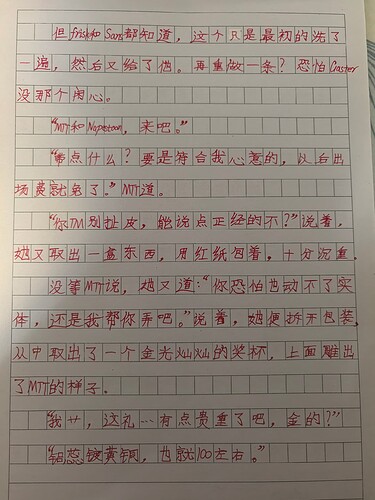 但frisk和Sans都知道，这个只是最初的洗了
一遍，然后又给了他。再重做一条？恐怕Gaster
没那个闲心。
“MTT和Napstaton，来吧。”
“带点什么？要是符合我心意的，以后出
场费就免了。”MTT道。
“你TM别扯皮，能说点正经的不？”说着，
她又取出一盒东西，用红纸包着，十分沉重。
没等MTT说，她又道：“你恐怕也动不了实
体，还是我帮你弄吧。”说着，她便拆开包装，
从中取出了一个金光灿灿的奖杯，上面雕出
了MTT的样子。
“我艹，这礼…有点贵重了吧，金的？”
“铝芯镀黄铜，也就100左右。”